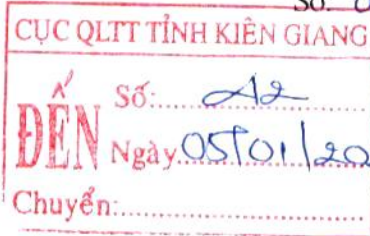 Số:
CỤC QLTT TỈNH KIÊN GIANG
ĐẾN
Số:
Ngày 05/01/20
Chuyển: